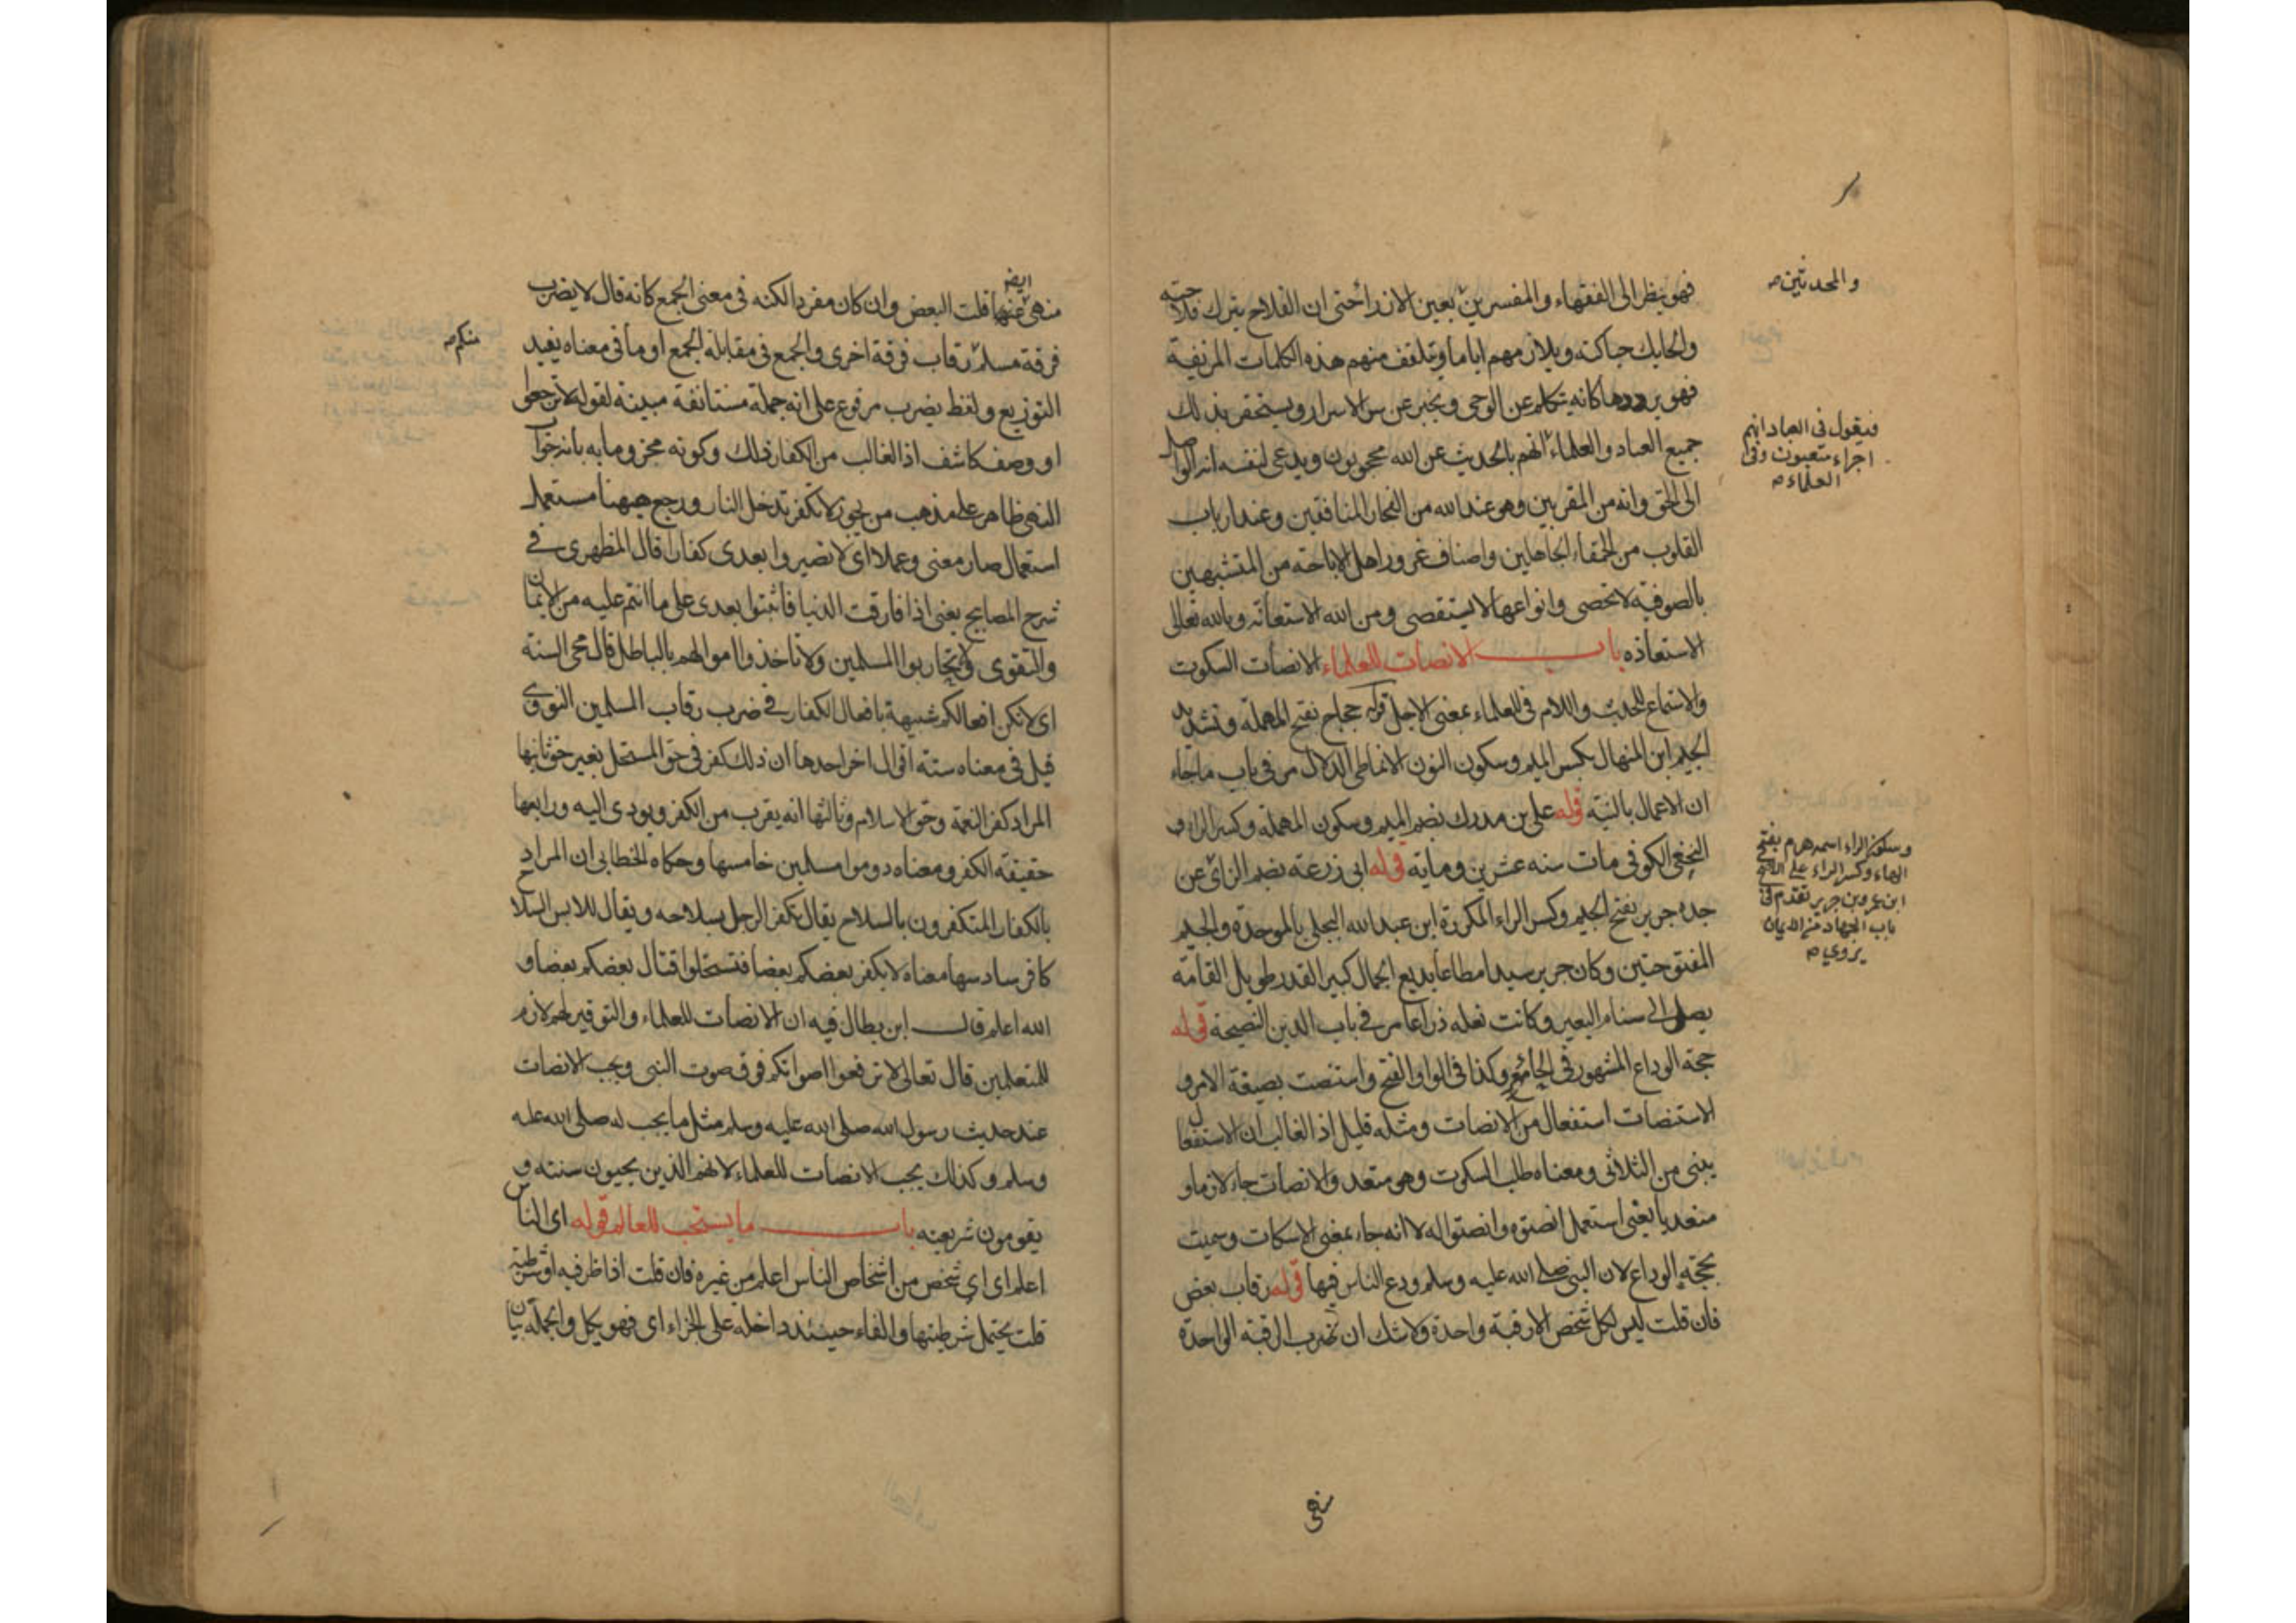 فهو ينظر الى الفقهاء والمفسرين بعين الازراء حتى ان الفلاح يترك فلاحته
والمحدثين صح
والحايك حياكته ويلازمهم اياما ويتلقف منهم هذه الكلمات المزيفة
فهو يرددها كانه يتكلم عن الوحى ويخبر عن سر الاسرار ويستحقر بذلك
جميع العباد والعلماء انهم بالحديث عن الله محجوبون ويدعى لنفسه انه الواصل
فيقول فى العباد انهم
اجراء متعبون وفى
العلماء صح
الى الحق وانه من المقربين وهو عند الله من الفجار المنافقين وعند ارباب
القلوب من الحمقاء الجاهلين واصناف غرور اهل الاباحة من المتشبهين
بالصوفية لا تحصى وانواعها لا يستقصى ومن الله الاستعانة وبالله تعالى
الاستعاذه باب الانصات للعلماء الانصات السكوت
والاستماع للحديث واللام فى العلماء بمعنى الاجل قوله حجاج بفتح المهملة وتشديد
الجيم ابن المنهال بكسر الميم وسكون النون الانماطى الدلال مر فى باب ماجاء
ان الاعمال بالنية قوله على بن مدرك بضم الميم وسكون المهملة وكسر الراء و
النخعى الكوفى مات سنه عشرين ومايه قوله ابى زرعة بضم الزاى عن
وسكون الراء اسمه هرم بفتح
الهاء وكسر الراء على الاصح
ابن عمرو بن جرير تقدم فى
باب الجهاد من الايمان
يروى صح
جده جرير بفتح الجيم وكسر الراء المكررة ابن عبد الله البجلى بالموحدة والجيم
المفتوحتين وكان جرير سيدا مطاعا بديع الجمال كبير القدر طويل القامة
يصل الى سنام البعير وكانت نعله ذراعا مر فى باب الدين النصيحة قوله
حجة الوداع المشهور فى الحاء وكذا فى الواو الفتح واستنصت بصيغة الامر و
الاستنصات استفعال من الانصات ومثله قليل اذ الغالب ان الاستفعال
يبنى من الثلاثى ومعناه طلب السكوت وهو متعد والانصات جاء لازما و
متعديا يعنى استعمل انصتوه وانصتوا له لا انه جاء بمعنى الاسكات وسميت
بحجة الوداع لان النبى صلى الله عليه وسلم ودع الناس فيها قوله رقاب بعض
فان قلت ليس لكل شخص الا رقبة واحدة ولا شك ان ضرب الرقبة الواحدة
منهى
منهى عنها ايضا قلت البعض وان كان مفردا لكنه فى معنى الجمع كانه قال لا يضرب
فرقة مسلم رقاب فرقة اخرى والجمع فى مقابلة الجمع او ما فى معناه يفيد
منكم صح
التوزيع ولفظ يضرب مرفوع على انه جملة مستانفة مبينة لقوله لا ترجعوا
او وصف كاشف اذ الغالب من الكفار ذلك وكونه مجزوما به بانه جواب
النهى ظاهر على مذهب من يجوز لا تكفر تدخل النار ورجع ههنا مستعمل
استعمال صار معنى وعملا اى لا تصيروا بعدى كفارا قال المظهرى فى
شرح المصابيح يعنى اذا فارقت الدنيا فاثبتوا بعدى على ما انتم عليه من الايمان
والتقوى ولا تحاربوا المسلمين ولا تاخذوا اموالهم بالباطل قال محى السنة
اى لا تكن افعالكم شبيهة بافعال الكفار فى ضرب رقاب المسلمين النووى
قيل فى معناه ستة اقوال اخر احدها ان ذلك كفر فى حق المستحل بغير حق ثانيها
المراد كفر النعمة وحق الاسلام وثالثها انه يقرب من الكفر ويودى اليه ورابعها
حقيقة الكفر ومعناه دوموا مسلمين خامسها وحكاه الخطابى ان المراد
بالكفار المتكفرون بالسلاح يقال تكفر الرجل بسلاحه ويقال للابس السلاح
كافر سادسها معناه لا يكفر بعضكم بعضا فتستحلوا قتال بعضكم بعضا و
الله اعلم قال ابن بطال فيه ان الانصات للعلماء والتوقير لهم لازم
للمتعلمين قال تعالى لا ترفعوا اصواتكم فوق صوت النبى ويجب الانصات
عند حديث رسول الله صلى الله عليه وسلم مثل ما يجب له صلى الله عليه
وسلم وكذلك يجب الانصات للعلماء لانهم الذين يحيون سنته و
يقومون شريعته باب ما يستحب للعالم قوله اى الناس
اعلم اى اى شخص من اشخاص الناس اعلم من غيره فان قلت اذا ظرفيه او شرطية
قلت يحتمل شرطيتها والفاء حينئذ داخلة على الجزاء اى فهو يكل والجملة بيان